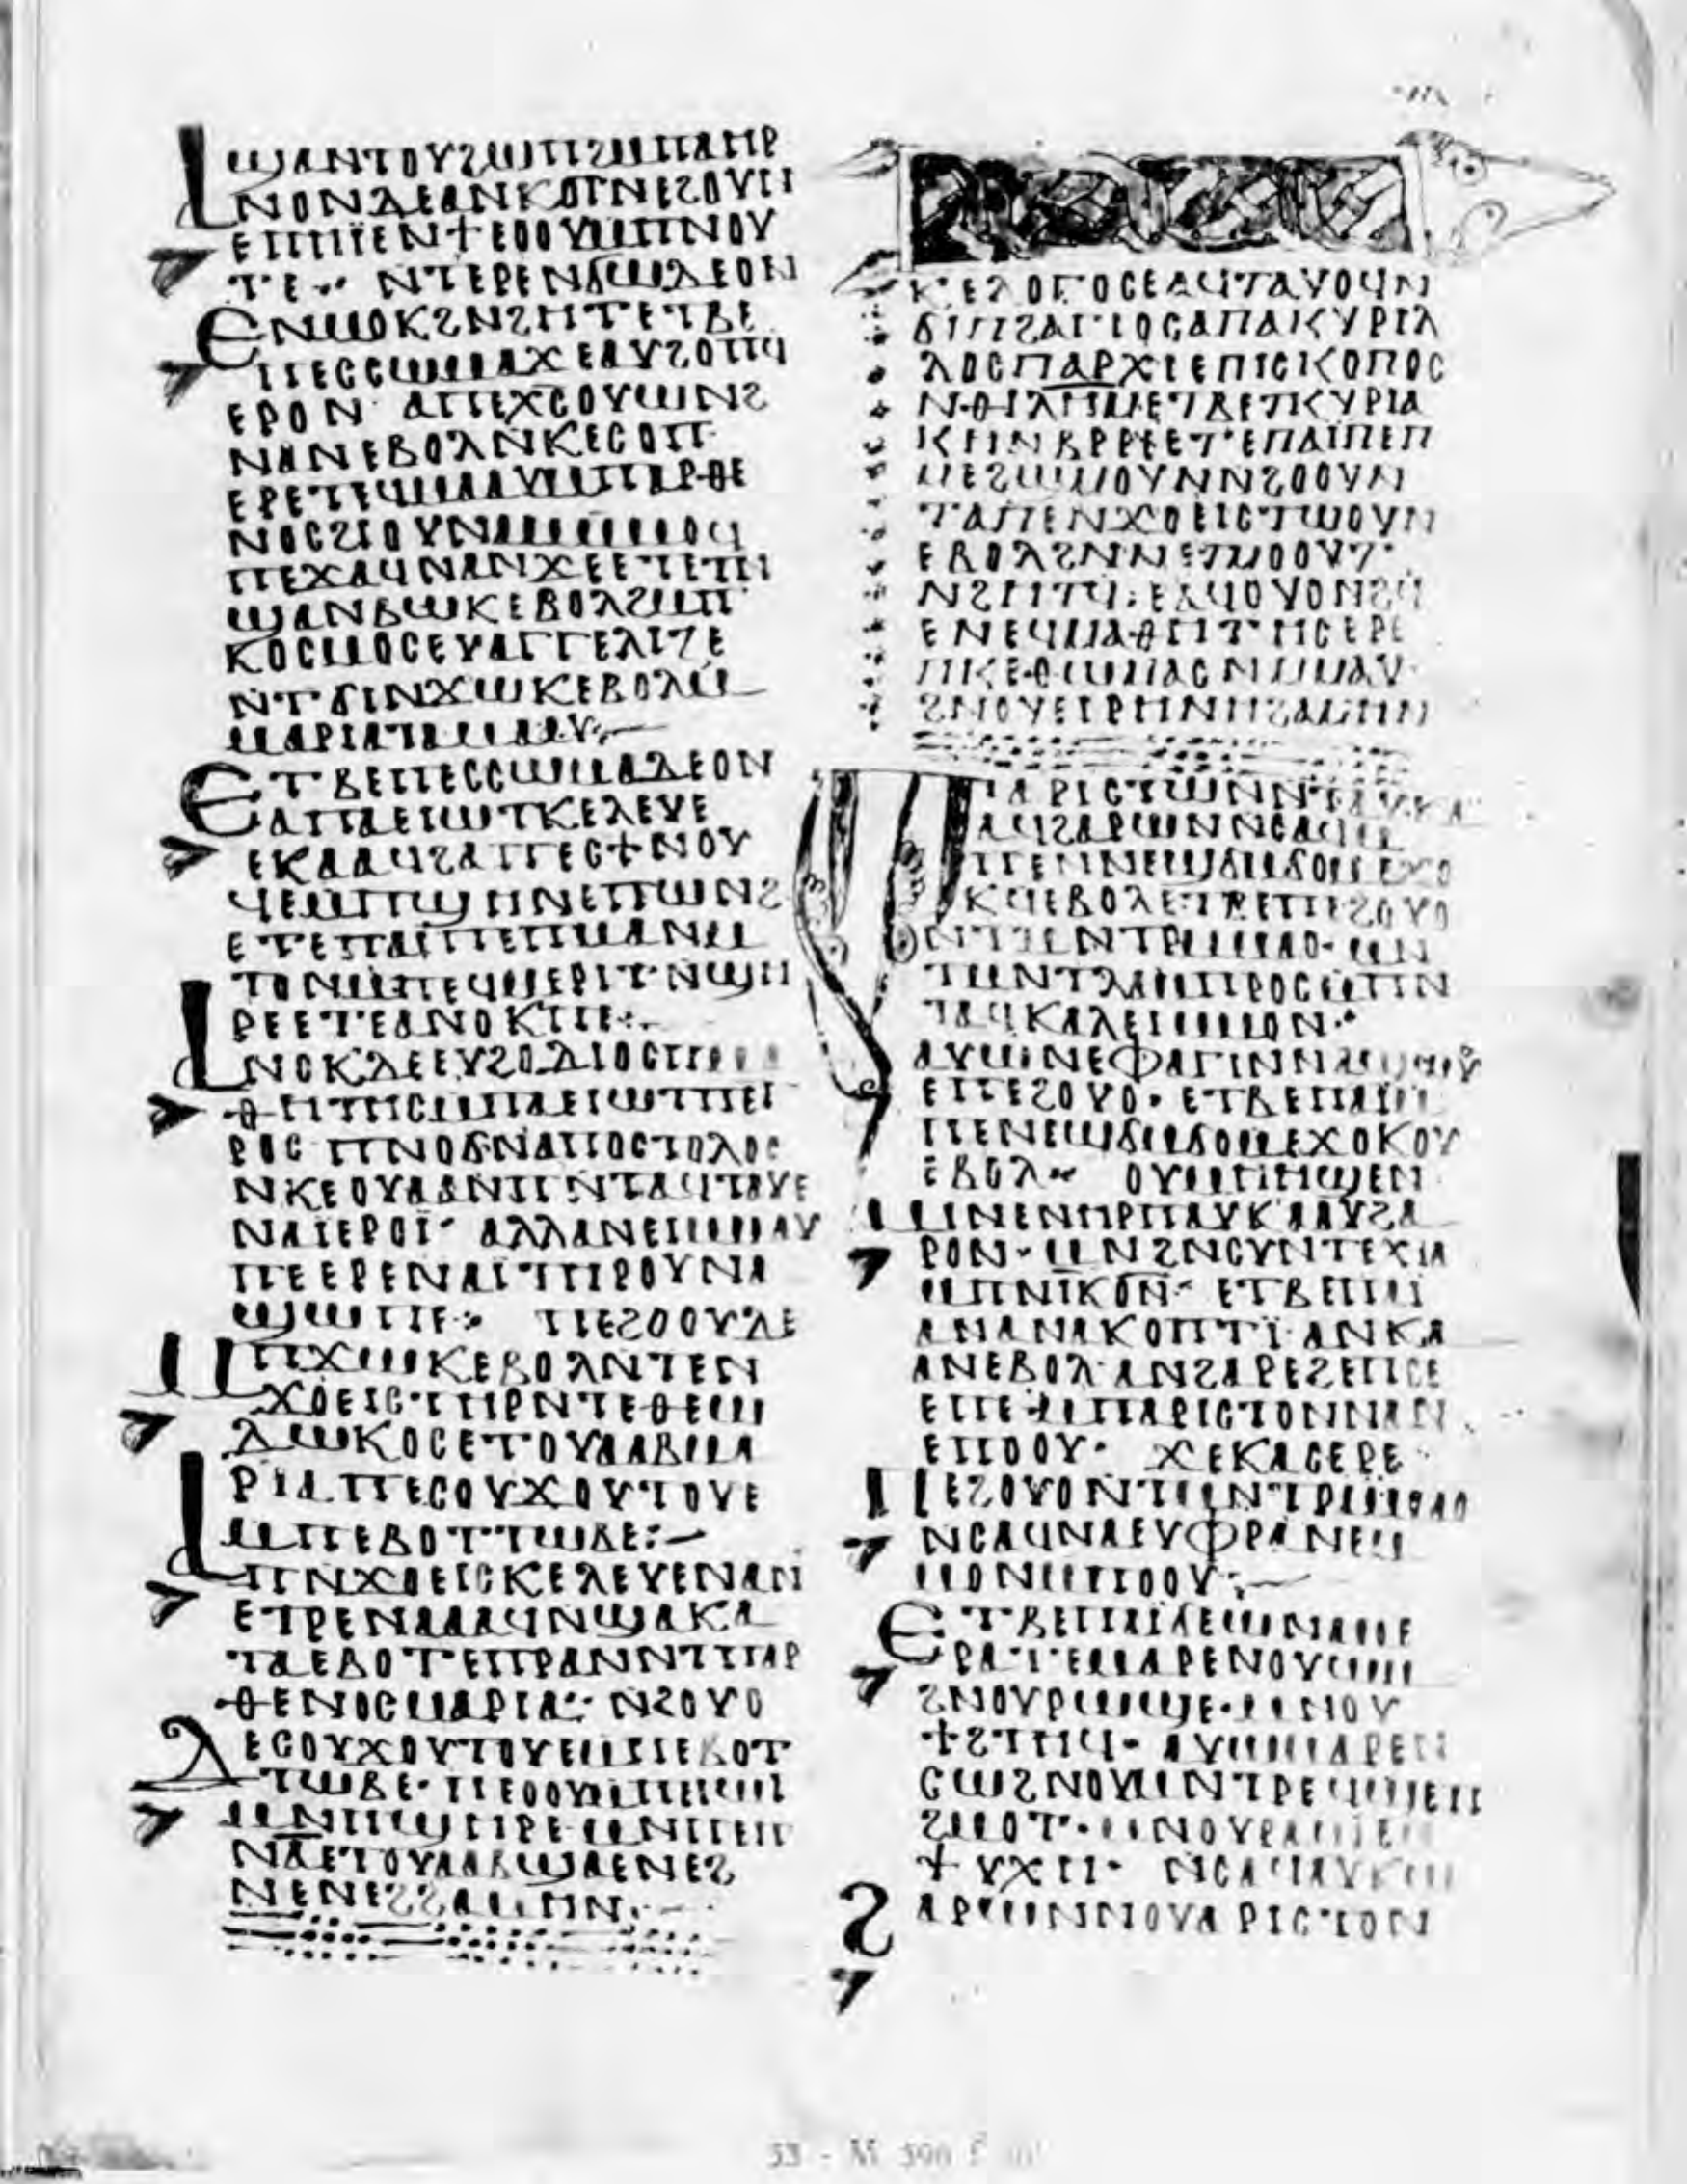 ϣⲁⲛⲧⲟⲩϩⲱⲡϩⲙⲡⲁⲏⲣ
ⲁⲛⲟⲛⲇⲉⲁⲛⲕⲟⲧⲛⲉϩⲟⲩⲛ
ⲉⲡⲏⲓⲉⲛϯⲉⲟⲟⲩⲙⲡⲛⲟⲩ
ⲧⲉ ⲛⲧⲉⲣⲉⲛϭⲱⲇⲉⲟⲛ
ⲉⲛⲙⲟⲕϩⲛϩⲏⲧⲉⲧⲃⲉ
ⲡⲉⲥⲥⲱⲙⲁϫⲉⲁⲩϩⲟⲡϥ
ⲉⲣⲟⲛ ⲁⲡⲉⲭⲥⲟⲩⲱⲛϩ
ⲛⲁⲛⲉⲃⲟⲗⲛⲕⲉⲥⲟⲡ
ⲉⲣⲉⲧⲉϥⲙⲁⲁⲩⲙⲡⲁⲣⲑⲉ
ⲛⲟⲥϩⲓⲟⲩⲛⲁⲙⲙⲙⲟϥ
ⲡⲉϫⲁϥⲛⲁⲛϫⲉⲉⲧⲉⲧⲛ
ϣⲁⲛⲃⲱⲕⲉⲃⲟⲗϩⲙⲡ
ⲕⲟⲥⲙⲟⲥⲉⲩⲁⲅⲅⲉⲗⲓⲍⲉ
ⲛⲧϭⲓⲛϫⲱⲕⲉⲃⲟⲗⲙ
ⲙⲁⲣⲓⲁⲧⲁⲙⲁⲁⲩ
ⲉⲧⲃⲉⲡⲉⲥⲥⲱⲙⲁⲇⲉⲟⲛ
ⲁⲡⲁⲉⲓⲱⲧⲕⲉⲗⲉⲩⲉ
ⲉⲕⲁⲁϥϩⲁⲡⲉⲥϯⲛⲟⲩ
ϥⲉⲙⲡϣⲏⲛⲉⲡⲱⲛϩ
ⲉⲧⲉⲡⲁⲓⲡⲉⲡⲙⲁⲛⲙ
ⲧⲟⲛⲙⲡⲉϥⲙⲉⲣⲓⲧⲛϣⲏ
ⲣⲉⲉⲧⲉⲁⲛⲟⲕⲡⲉ
ⲁⲛⲟⲕⲇⲉⲉⲩϩⲟⲇⲓⲟⲥⲡⲙⲁ
ⲑⲏⲧⲏⲥⲙⲡⲁⲉⲓⲱⲧⲡⲉⲧ
ⲣⲟⲥ ⲡⲛⲟϭⲛⲁⲡⲟⲥⲧⲟⲗⲟⲥ
ⲛⲕⲉⲟⲩⲁⲁⲛⲡⲉⲛⲧⲁϥⲧⲁⲩⲉ
ⲛⲁⲓⲉⲣⲟⲓ ⲁⲗⲗⲁⲛⲉⲓⲙⲙⲁⲩ
ⲡⲉⲉⲣⲉⲛⲁⲓⲧⲏⲣⲟⲩⲛⲁ
ϣⲱⲡⲉ ⲡⲉϩⲟⲟⲩⲇⲉ
ⲙⲡϫⲱⲕⲉⲃⲟⲗⲛⲧⲉⲛ
ϫⲟⲉⲓⲥⲧⲏⲣⲛⲧⲉⲑⲉⲱ
ⲇⲱⲕⲟⲥⲉⲧⲟⲩⲁⲁⲃⲙⲁ
ⲣⲓⲁⲡⲉⲥⲟⲩϫⲟⲩⲧⲟⲩⲉ
ⲙⲡⲉⲃⲟⲧⲧⲱⲃⲉ
ⲁⲡⲛϫⲟⲉⲓⲥⲕⲉⲗⲉⲩⲉⲛⲁⲛ
ⲉⲧⲣⲉⲛⲁⲁⲁϥⲛϣⲁⲕⲁ
ⲧⲁⲉⲃⲟⲧⲉⲡⲣⲁⲛⲛⲧⲡⲁⲣ
ⲑⲉⲛⲟⲥⲙⲁⲣⲓⲁ ⲛϩⲟⲩⲟ
ⲇⲉⲥⲟⲩϫⲟⲩⲧⲟⲩⲉⲙⲡⲉⲃⲟⲧ
ⲧⲱⲃⲉ ⲡⲉⲟⲟⲩⲙⲡⲉⲓⲱⲧ
ⲙⲛⲡϣⲏⲣⲉ ⲙⲛⲡⲉⲡ
ⲛⲁⲉⲧⲟⲩⲁⲁⲃϣⲁⲉⲛⲉϩ
ⲛⲉⲛⲉϩϩⲁⲙⲏⲛ
ⲕⲉⲗⲟⲅⲟⲥⲉⲁϥⲧⲁⲩⲟϥⲛ
ϭⲓⲡϩⲁⲅⲓⲟⲥⲁⲡⲁⲕⲩⲣⲓⲗ
ⲗⲟⲥⲡⲁⲣⲭⲓⲉⲡⲓⲥⲕⲟⲡⲟⲥ
ⲛⲑⲓⲗⲏⲙⲉⲧⲃⲉⲧⲕⲩⲣⲓⲁ
ⲕⲏⲛⲃⲣⲣⲉⲉⲧⲉⲡⲁⲓⲡⲉⲡ
ⲙⲉϩϣⲙⲟⲩⲛⲛϩⲟⲟⲩⲛ
ⲧⲁⲡⲉⲛϫⲟⲉⲓⲥⲧⲱⲟⲩⲛ
ⲉⲃⲟⲗϩⲛⲛⲉⲧⲙⲟⲟⲩⲧ
ⲛϩⲏⲧϥ ⲉⲁϥⲟⲩⲟⲛϩϥ
ⲉⲛⲉϥⲙⲁⲑⲏⲧⲏⲥⲉⲣⲉ
ⲡⲕⲉⲑⲱⲙⲁⲥⲛⲙⲙⲁⲩ
ϩⲛⲟⲩⲉⲓⲣⲏⲛⲏϩⲁⲙⲏⲛ
ⲁϥϩⲁⲣⲱⲛⲛⲥⲁϥ
ⲡⲉⲛⲛⲉϣϭⲙϭⲟⲙⲉϫⲟ
ⲕϥⲉⲃⲟⲗⲉⲧⲃⲉⲡⲉϩⲟⲩⲟ
ⲛⲧⲙⲛⲧⲣⲙⲙⲁⲟ ⲙⲛ
ⲧⲙⲛⲧⲗⲁⲙⲡⲣⲟⲥⲙⲡⲛ
ⲧⲁϥⲕⲁⲗⲉⲓⲙⲙⲟⲛ
ⲉⲡⲉϩⲟⲩⲟ ⲉⲧⲃⲉⲡⲁⲓ
ⲡⲉⲛⲉϣϭⲙϭⲟⲙⲉϫⲟⲕⲟⲩ
ⲉⲃⲟⲗ ⲟⲩⲙⲏⲏϣⲉⲛ
ⲙⲛⲉⲛⲏⲣⲡⲁⲩⲕⲁⲁⲩϩⲁ
ⲣⲟⲛ ⲙⲛϩⲛⲥⲩⲛⲧⲉⲭⲓⲁ
ⲙⲡⲛⲓⲕⲟⲛ ⲉⲧⲃⲉⲡⲁⲓ
ⲁⲛⲁⲛⲁⲕⲟⲡⲧⲓ ⲁⲛⲕⲁ
ⲁⲛⲉⲃⲟⲗ ⲁⲛϩⲁⲣⲉϩⲉⲡⲥⲉ
ⲉⲡⲉⲙⲡⲁⲣⲓⲥⲧⲟⲛⲛⲁⲛ
ⲉⲡⲟⲟⲩ ϫⲉⲕⲁⲥⲉⲣⲉ
ⲡⲉϩⲟⲩⲟⲛⲧⲙⲛⲧⲣⲙⲙⲁⲟ
ⲛⲥⲁϥⲛⲁⲉⲩⲫⲣⲁⲛⲉⲙ
ⲙⲟⲛⲙⲡⲟⲟⲩ
ϩⲛⲟⲩⲣⲁϣⲉ ⲙⲛⲟⲩ
ϯϩⲧⲏϥ ⲁⲩⲱⲙⲁⲣⲉⲛ
ⲥⲱϩⲛⲟⲩⲙⲛⲧⲣⲉϥϣⲉⲡ
ϩⲙⲟⲧ ⲙⲛⲟⲩⲣⲁϣⲉ
ⲁⲣⲱⲛⲛⲟⲩⲁⲣⲓⲥⲧⲟⲛ